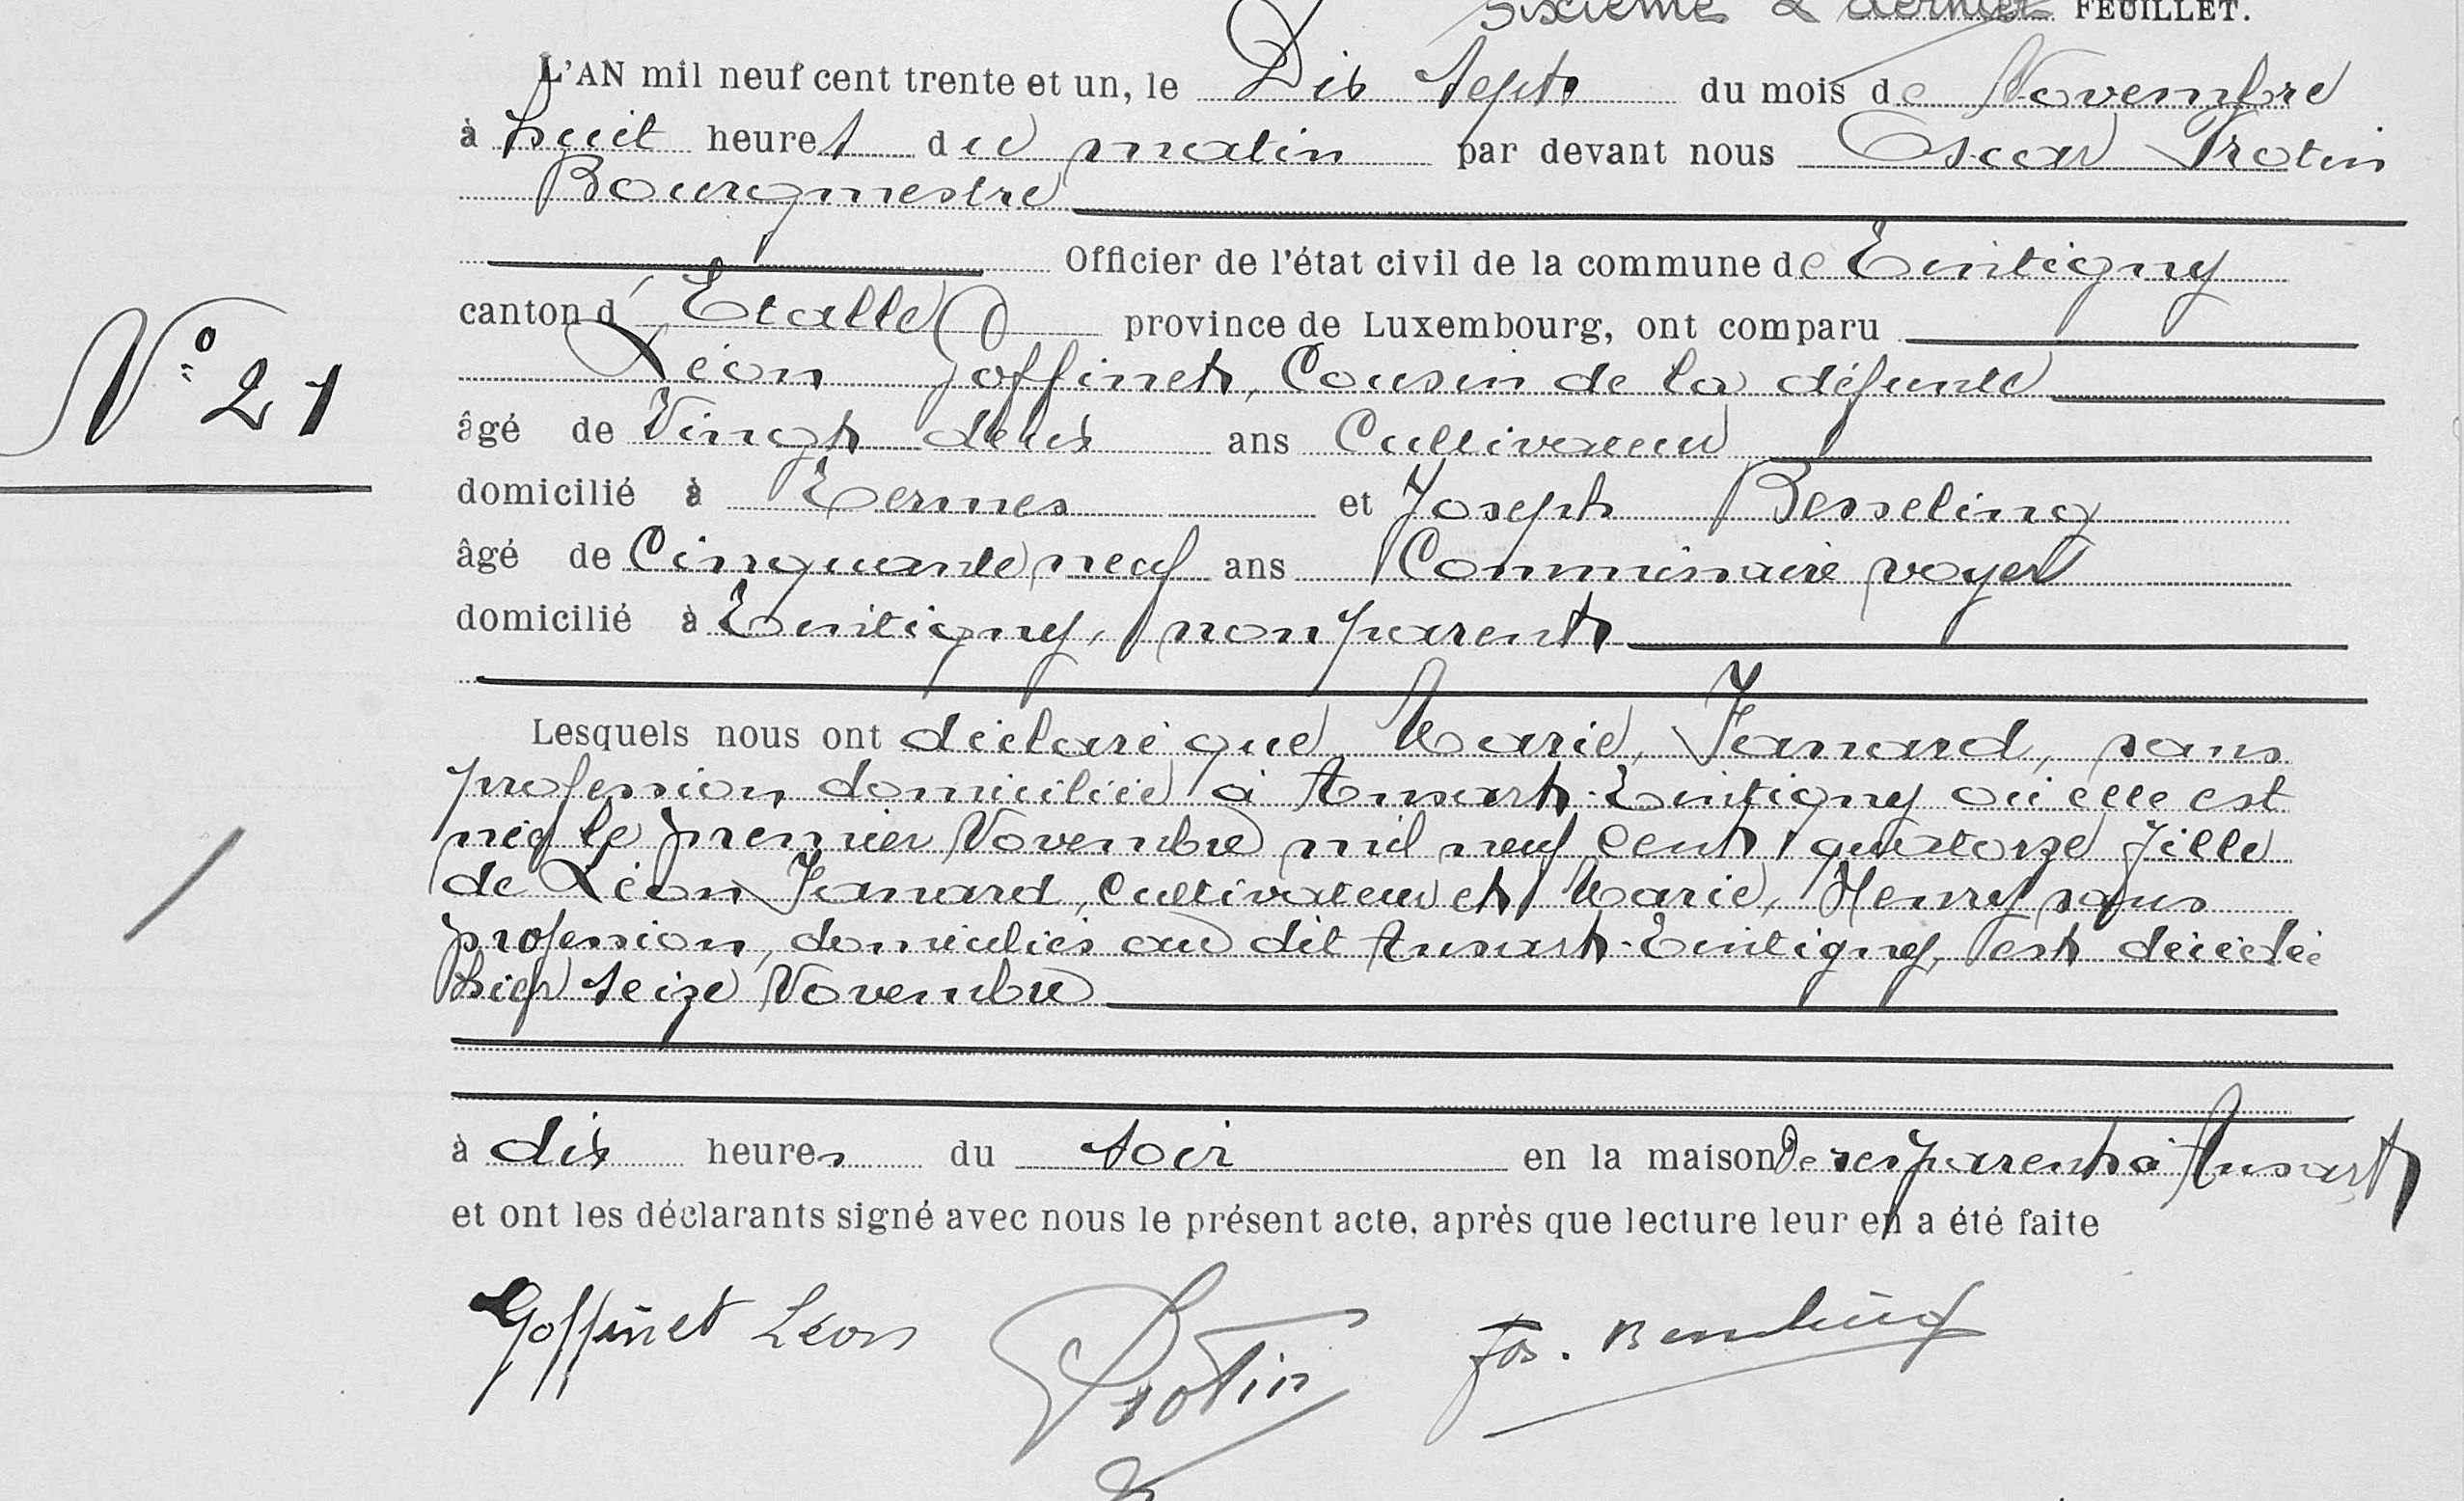 Sixième & dernier FEUILLET.
L'AN mil neuf cent trente et un, le Dix Sept du mois de Novembre
à huit heures du matin par devant nous Oscar Protin
Bourgmestre
Officier de l'état civil de la commune de Tintigny
canton d'Etalle province de Luxembourg, ont comparu
N° 21
Léon Goffinet, Cousin de la défunte
âgé de Vingt deux ans Cultivateur
domicilié à Termes et Joseph Besseling
âgé de Cinquante neuf ans Commissaire voyer
domicilié à Tintigny, non parent
Lesquels nous ont déclaré que Marie, Jamard, sans
profession domiciliée à Ansart-Tintigny où elle est
née le premier Novembre mil neuf cent quatorze fille
de Léon Jamard, Cultivateur et Marie, Henry sans
profession, domiciliés au dit Ansart-Tintigny, est décédée
hier seize Novembre
à dix heures du soir en la maison De ses parents à Ansart
et ont les déclarants signé avec nous le présent acte, après que lecture leur en a été faite
Goffinet Léon Protin Jos. Besseling